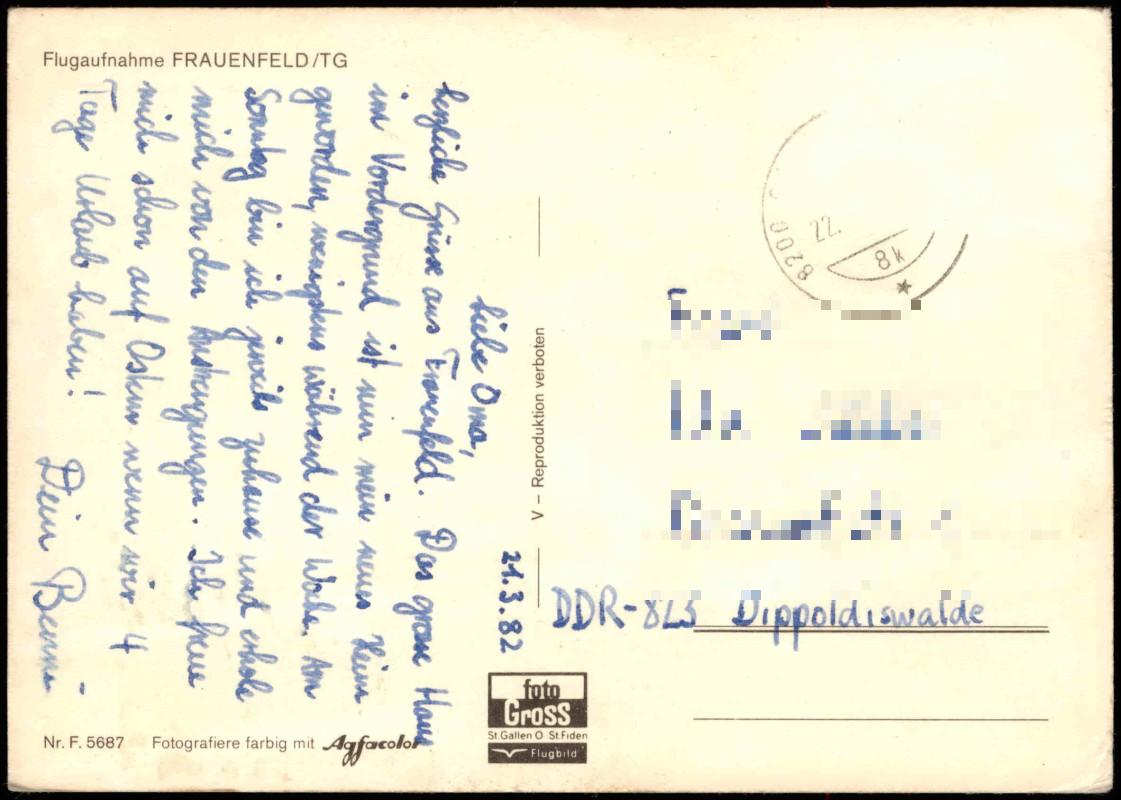 Flugaufnahme FRAUENFELD/TG
21.3.82
Liebe Oma,
herzliche Grüsse aus Frauenfeld. Das grosse Haus
im Vordergrund ist nun mein neues Heim
geworden, wenigstens während der Woche. Am
Sonntag bin ich jeweils zuhause und erhole
mich von den Anstrengungen. Ich freue
mich schon auf Ostern wenn wir 4
Tage Urlaub haben!
Dein Benni
Nr. F. 5687 Fotografiere farbig mit Agfacolor
V – Reproduktion verboten
foto
Gross
St.Gallen O St.Fiden
Flugbild
8200
22.
8k
DDR-825 Dippoldiswalde